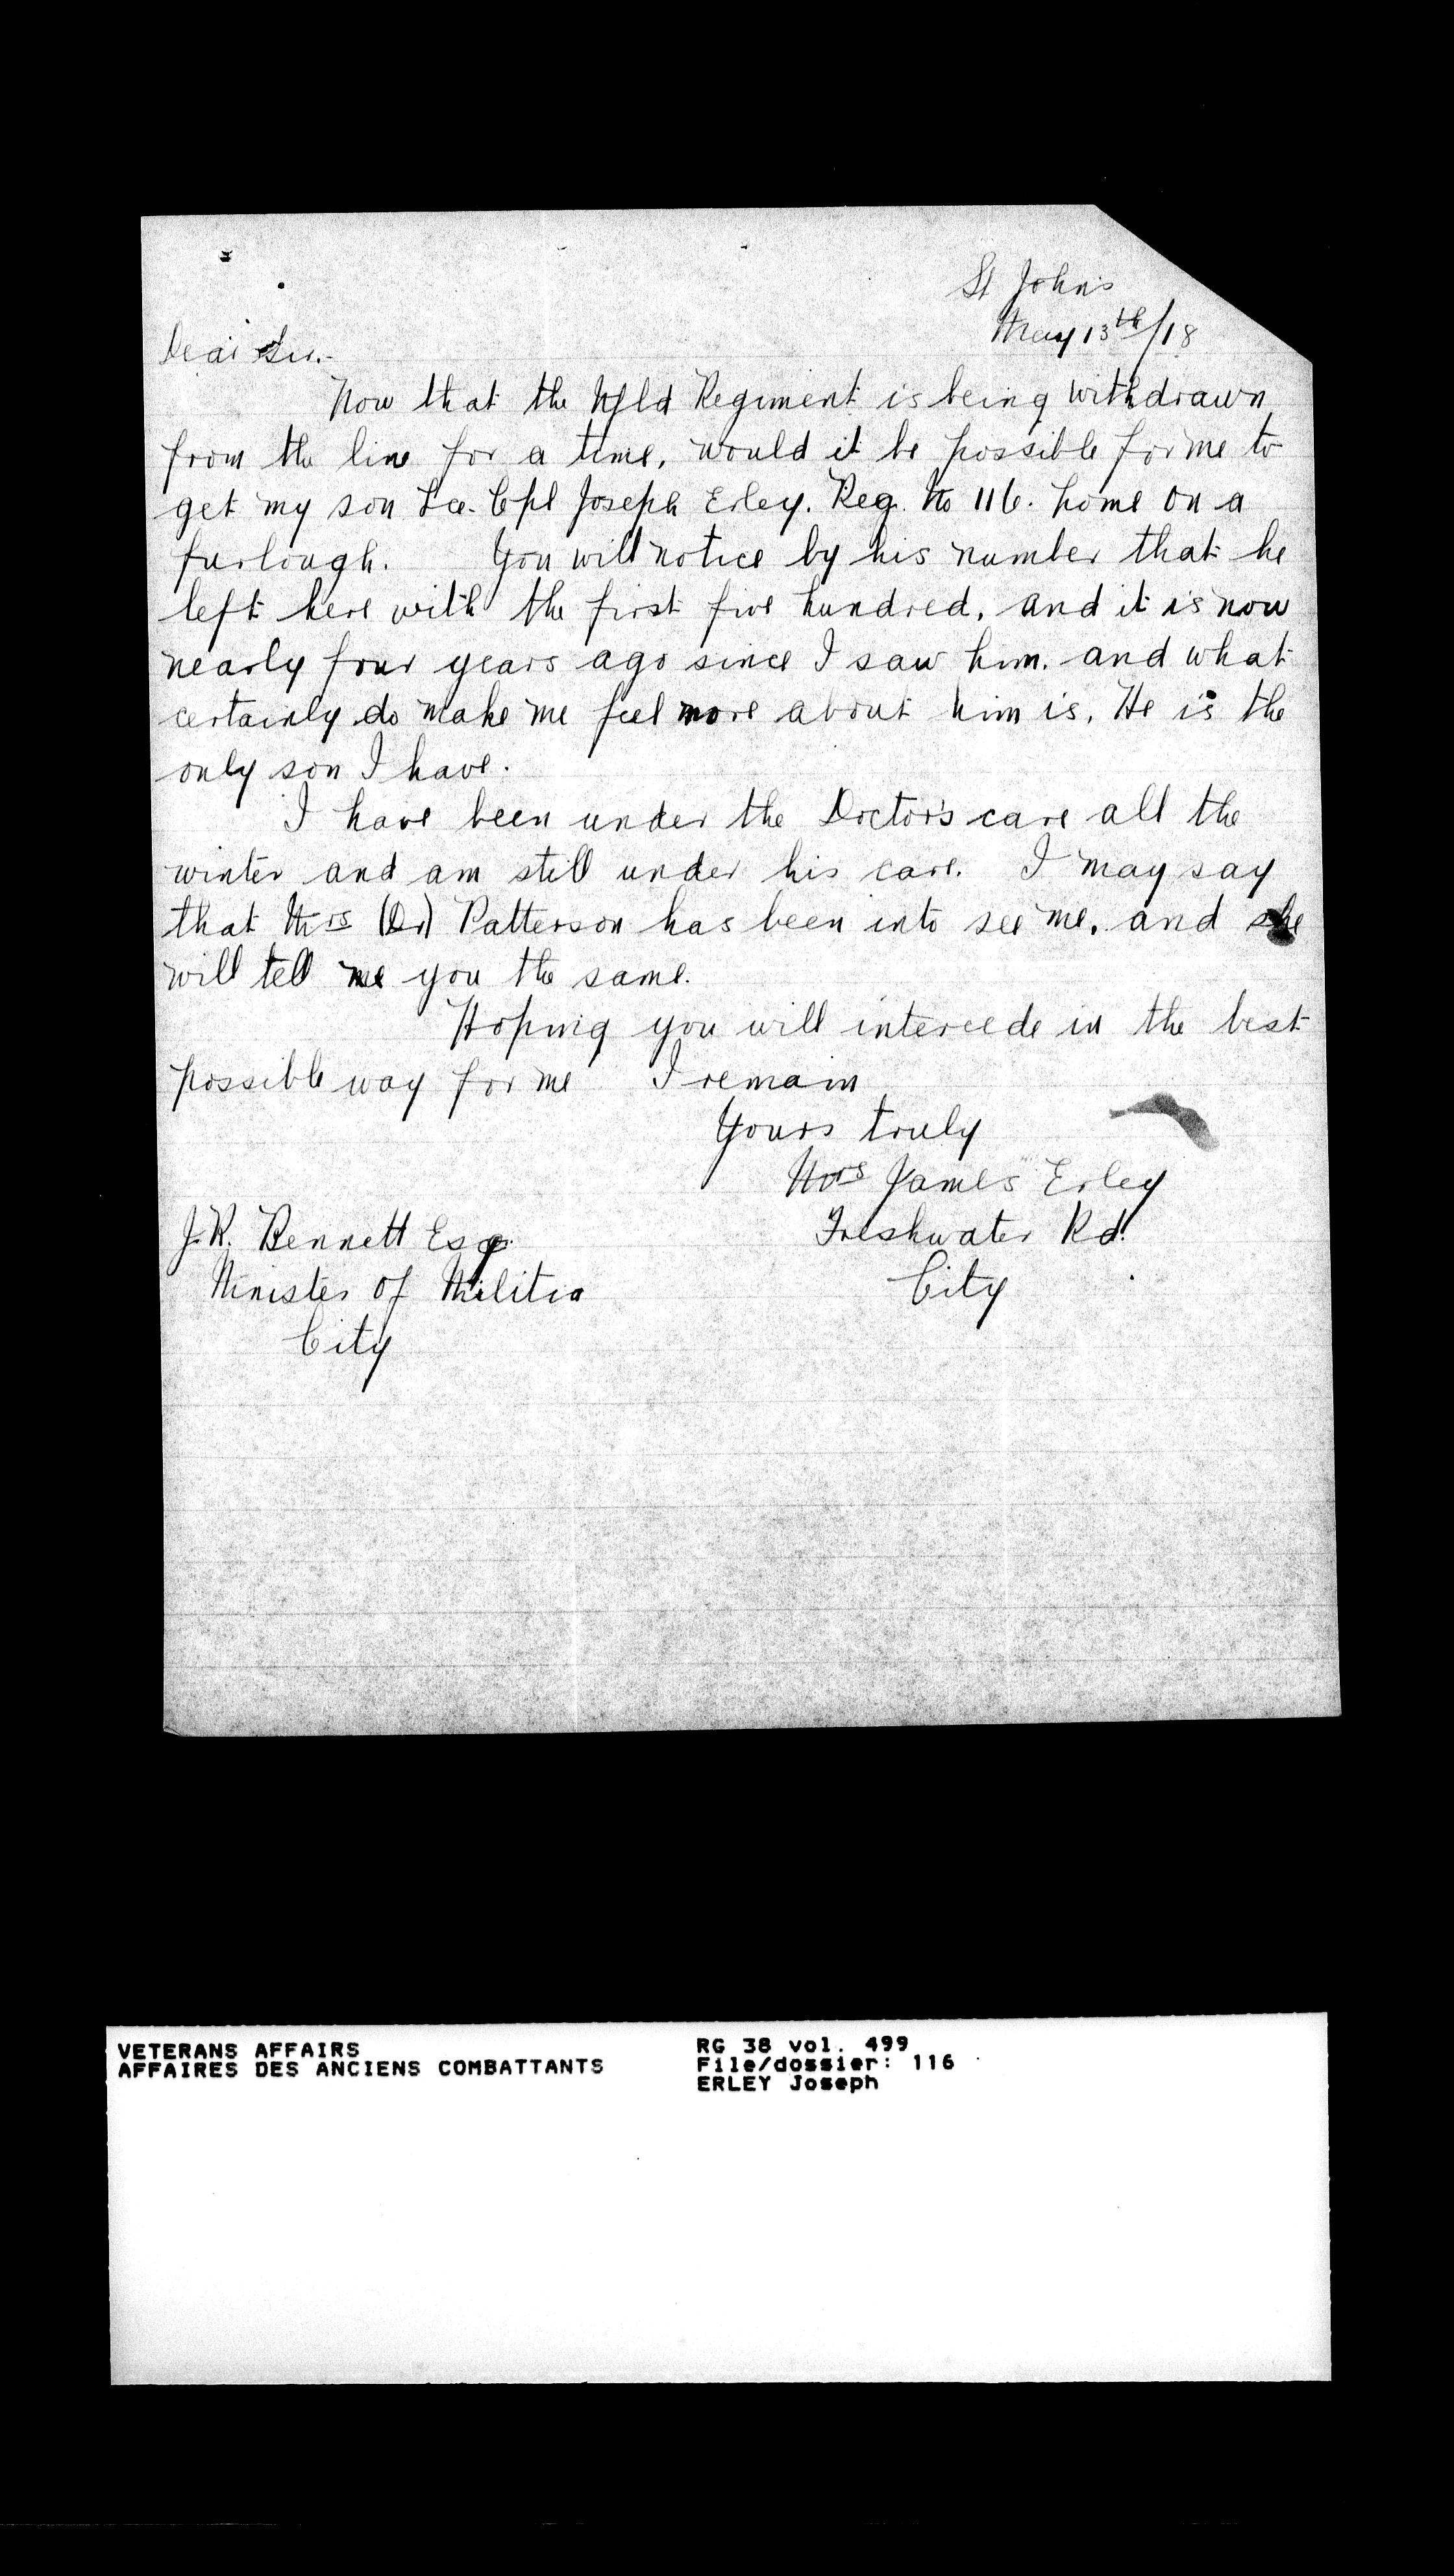 St Johns
May 13th/18
Dear Sir.-
Now that the Nfld Regiment is being withdrawn
from the line for a time, would it be possible for me to
get my son Lce. Cpl Joseph Erley. Reg. No 116. home on a
furlough. You will notice by his number that he
left here with the first five hundred, and it is now
nearly four years ago since I saw him. and what
certainly do make me feel more about him is, He is the
only son I have.
I have been under the Doctor's care all the
winter and am still under his care. I may say
that Mrs (Dr) Patterson has been into see me. and she
will tell me you the same.
Hoping you will intercede in the best
possible way for me I remain
Yours truly
Mrs James Erley
Freshwater Rd.
City
J.R. Bennett Esq.
Minister of Militia
City
VETERANS AFFAIRS
AFFAIRES DES ANCIENS COMBATTANTS
RG 38 vol. 499
File/dossier: 116
ERLEY Joseph